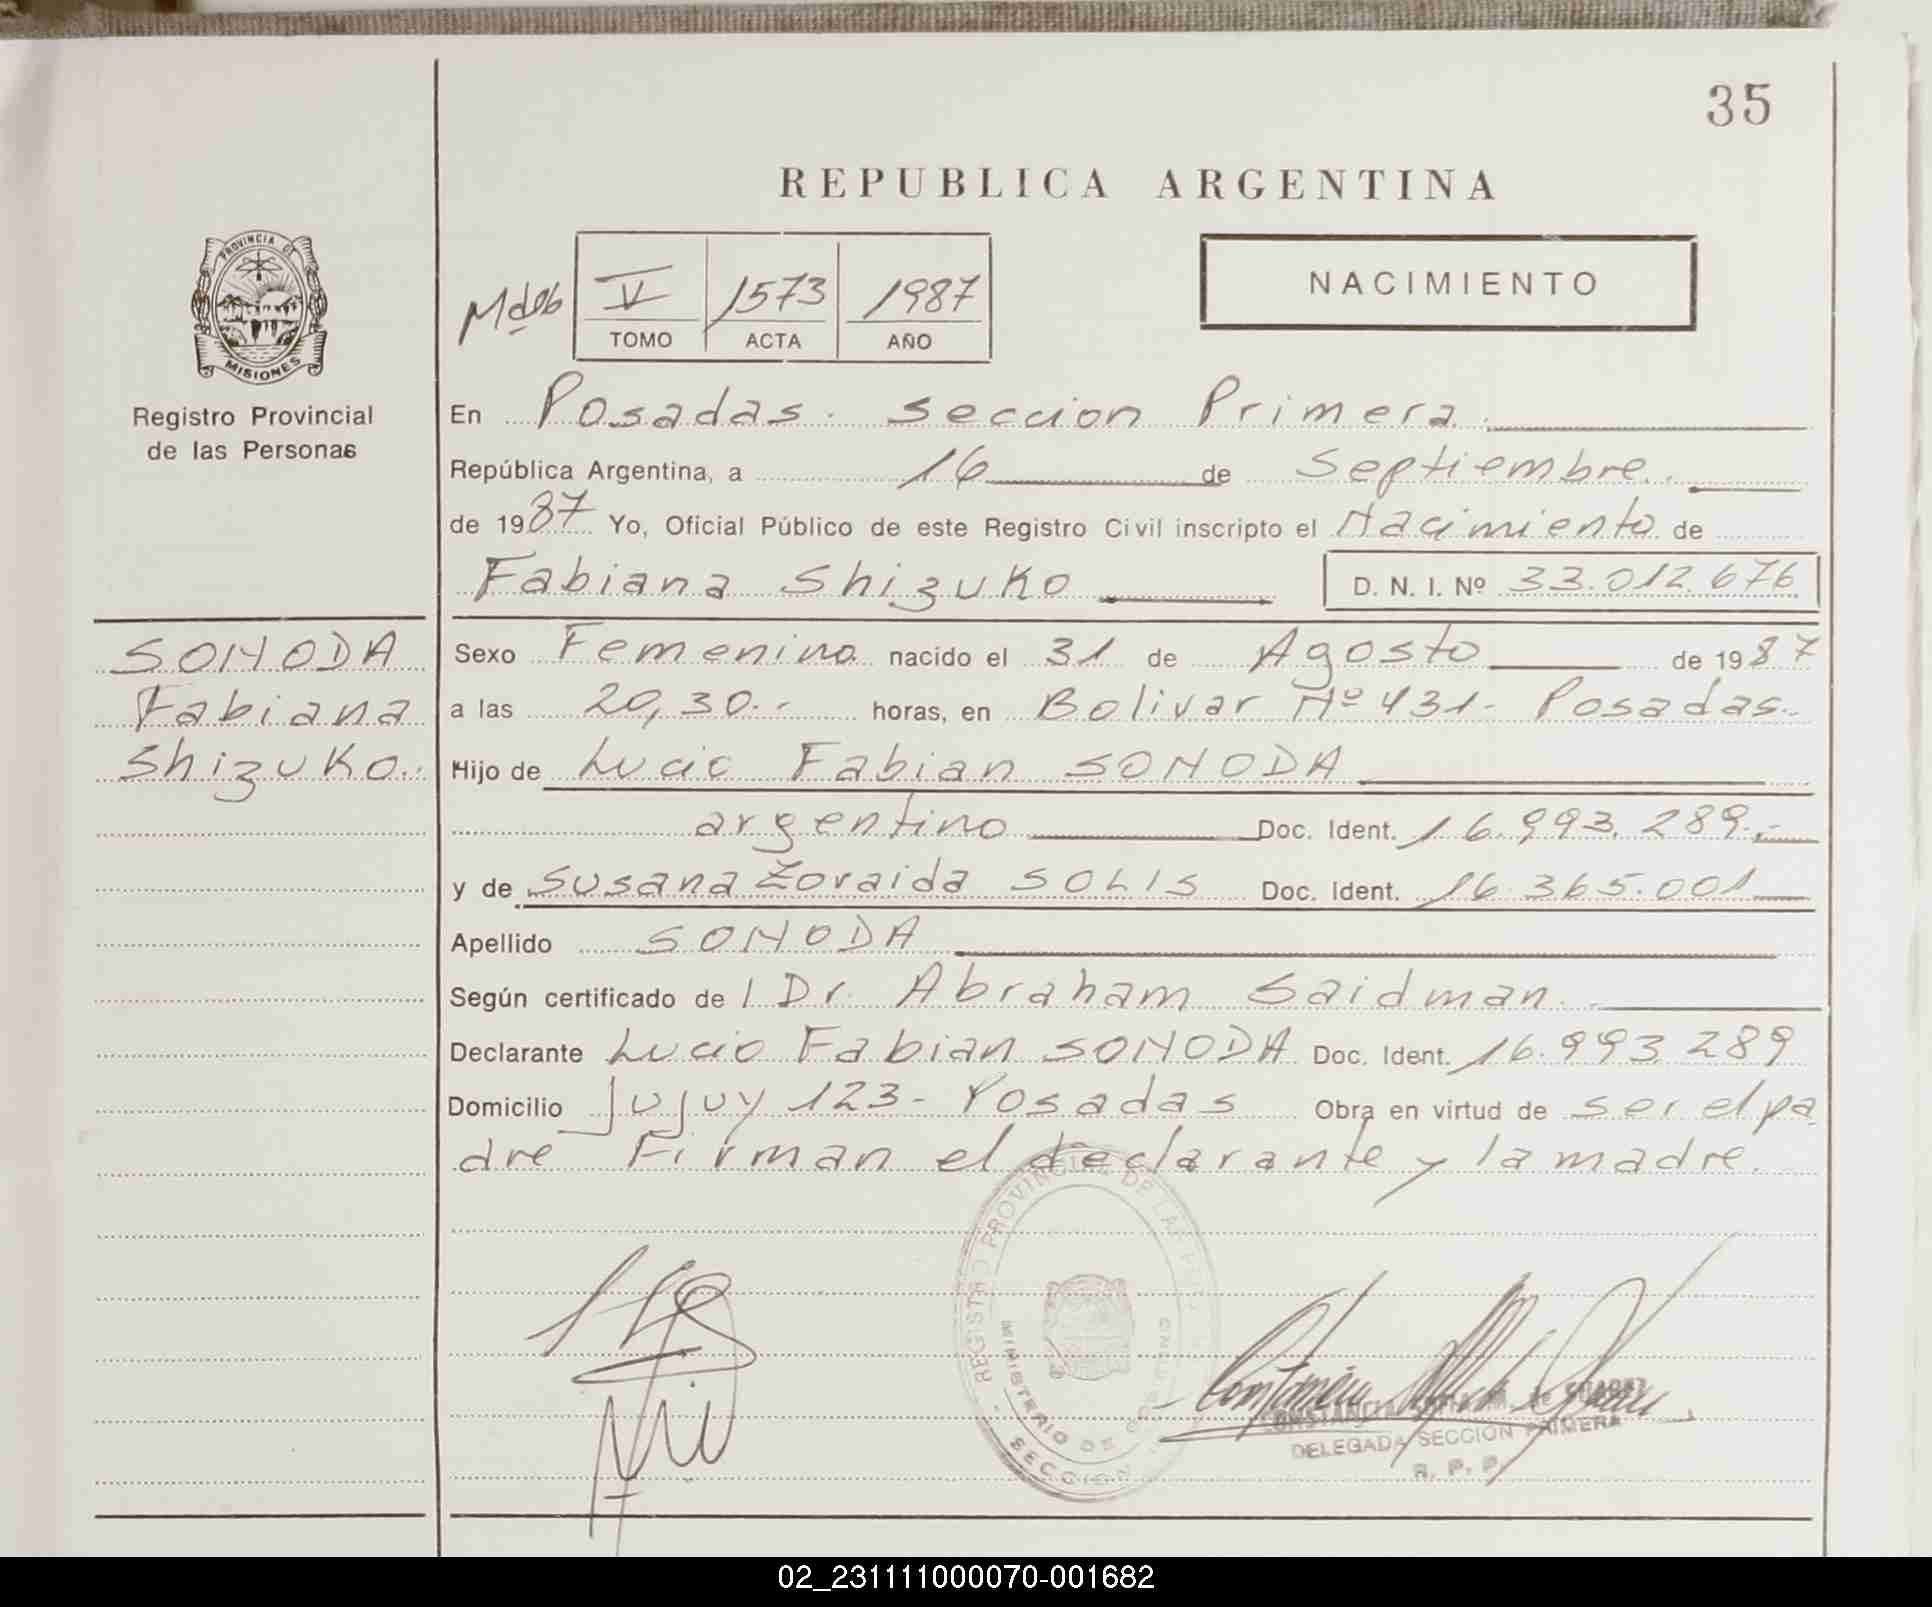 35
REPUBLICA ARGENTINA
PROVINCIA DE
MISIONES
Registro Provincial
de las Personas
V 1573 1987
TOMO ACTA AÑO
NACIMIENTO
En Posadas. Seccion Primera.
República Argentina, a 16 de Septiembre.
de 1987 Yo, Oficial Público de este Registro Civil inscripto el Nacimiento de
Fabiana Shizuko D. N. I. Nº 33.012.676
SONODA
Fabiana
Shizuko.
Sexo Femenino nacido el 31 de Agosto de 1987
a las 20,30.- horas, en Bolivar Nº 431- Posadas.
Hijo de Lucio Fabian SONODA
argentino Doc. Ident. 16.993.289.-
y de Susana Zoraida SOLIS Doc. Ident. 16.365.001
Apellido SONODA
Según certificado de l Dr. Abraham Saidman.
Declarante Lucio Fabian SONODA Doc. Ident. 16.993.289
Domicilio Jujuy 123- Posadas Obra en virtud de ser el pa
dre Firman el declarante y la madre.
REGISTRO PROVINCIAL DE LAS
MINISTERIO DE
SECCION
CONSTANCIA de SUAREZ
DELEGADA SECCION PRIMERA
R. P. P.
02_231111000070-001682